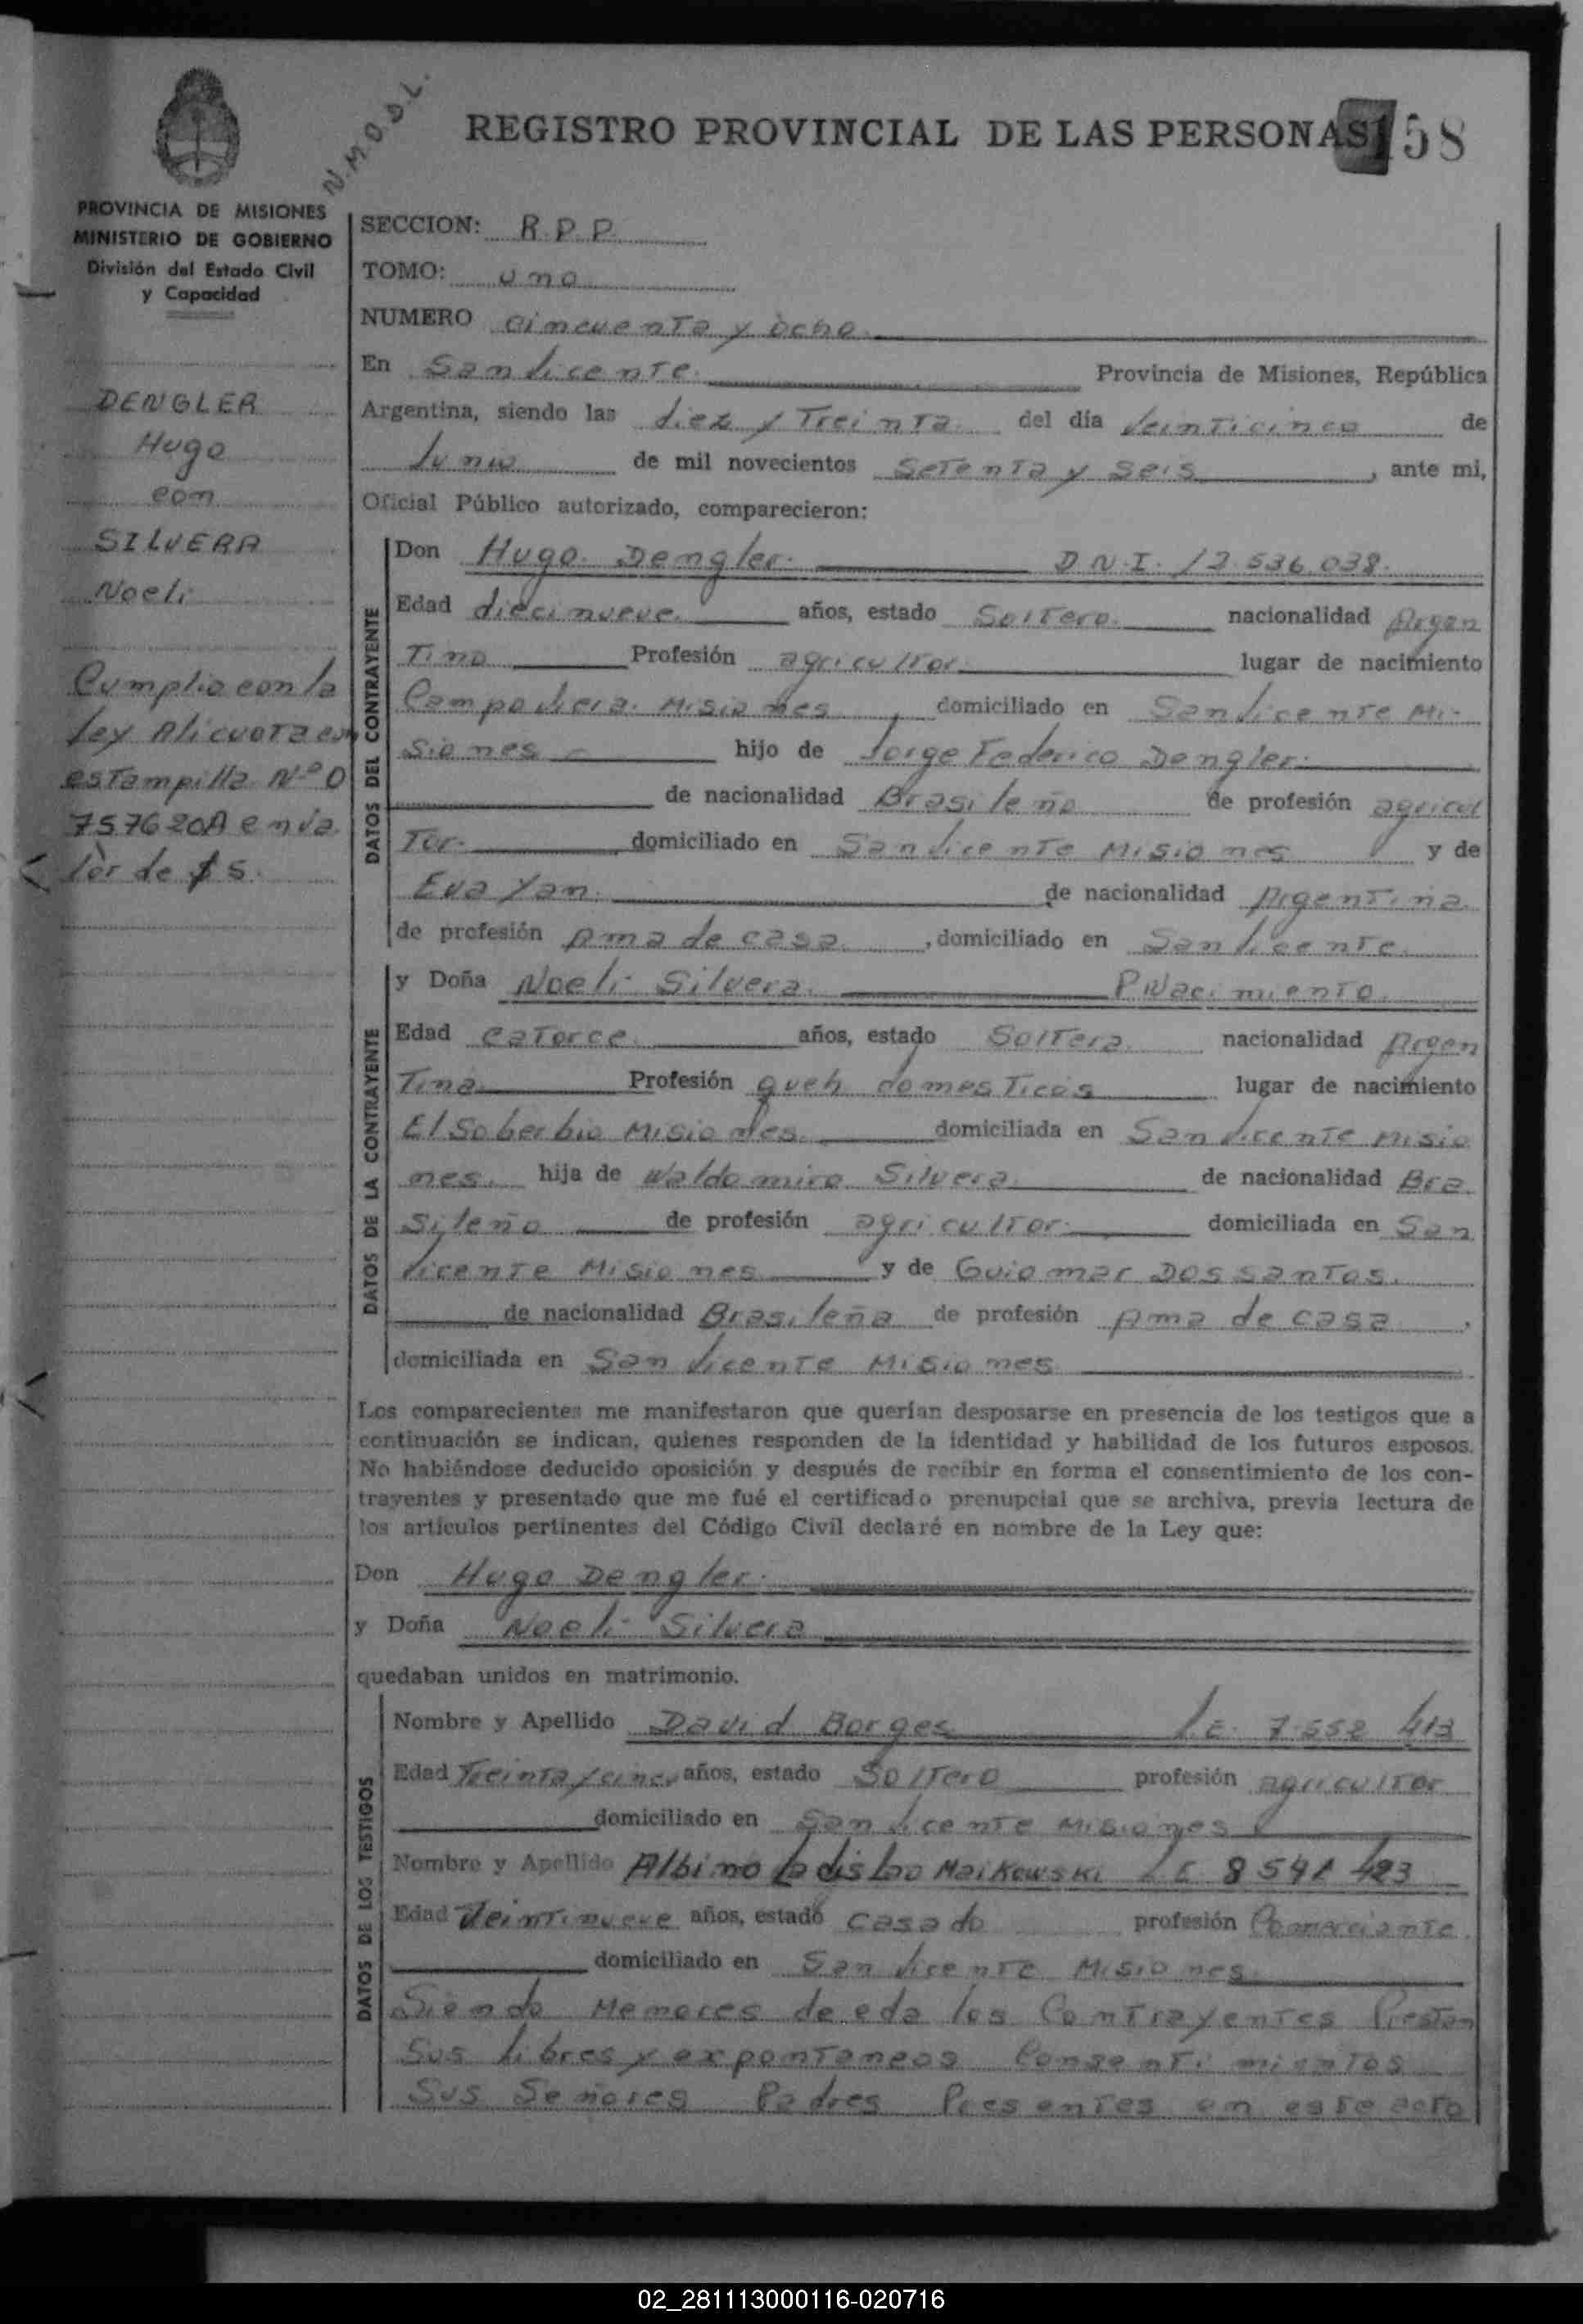 N.M.O.D.L.
REGISTRO PROVINCIAL DE LAS PERSONAS 158
PROVINCIA DE MISIONES
MINISTERIO DE GOBIERNO
División del Estado Civil
y Capacidad
DENGLER
Hugo
con
SILVERA
Noeli
Cumplio con la
Ley Alicuota con
estampilla Nº 0
757620A en va
lor de $ 5.
SECCION: R.P.P.
TOMO: uno
NUMERO cincuenta y ocho
En San Vicente Provincia de Misiones, República
Argentina, siendo las diez y Treinta del día Veinticinco de
Junio de mil novecientos Setenta y Seis, ante mi,
Oficial Público autorizado, comparecieron:
DATOS DEL CONTRAYENTE
Don Hugo Dengler. D.N.I. 12.536.038.
Edad diecinueve años, estado Soltero nacionalidad Argen
Tino Profesión agricultor lugar de nacimiento
Campo Viera Misiones, domiciliado en San Vicente Mi-
siones hijo de Jorge Federico Dengler.
de nacionalidad Brasileño de profesión agricul
Tor. domiciliado en San Vicente Misiones y de
Eva Yan. de nacionalidad Argentina
de profesión Ama de casa, domiciliado en San Vicente
DATOS DE LA CONTRAYENTE
y Doña Noeli Silvera. P/Nacimiento.
Edad catorce años, estado Soltera nacionalidad Argen
Tina Profesión queh domesticos lugar de nacimiento
El Soberbio Misiones. domiciliada en San Vicente Misio
nes. hija de Waldomiro Silvera de nacionalidad Bra
Sileño de profesión agricultor. domiciliada en San
Vicente Misiones y de Guiomar Dos santos.
de nacionalidad Brasileña de profesión Ama de casa,
domiciliada en San Vicente Misiones
Los comparecientes me manifestaron que querían desposarse en presencia de los testigos que a
continuación se indican, quienes responden de la identidad y habilidad de los futuros esposos.
No habiéndose deducido oposición y después de recibir en forma el consentimiento de los con-
trayentes y presentado que me fué el certificado prenupcial que se archiva, previa lectura de
los artículos pertinentes del Código Civil declaré en nombre de la Ley que:
Don Hugo Dengler.
y Doña Noeli Silvera
quedaban unidos en matrimonio.
DATOS DE LOS TESTIGOS
Nombre y Apellido David Borges L.E. 7.552 413
Edad Treinta y cinco años, estado Soltero profesión agricultor
domiciliado en San Vicente Misiones
Nombre y Apellido Albino Ladislao Maikowski L E 8 541 423
Edad Veintinueve años, estado casado profesión Comerciante
domiciliado en San Vicente Misiones
Siendo Menores de eda los Contrayentes Prestan
Sus Libres y expontaneos Consentimientos
Sus Señores Padres Presentes en este acto
02_281113000116-020716